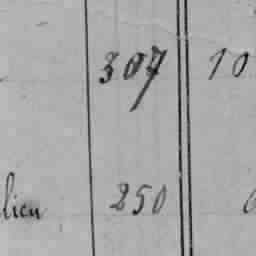 307 10
lieu 250